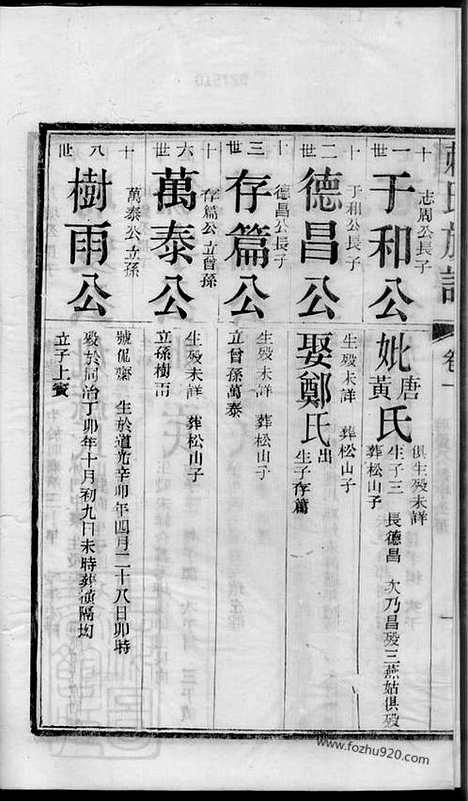 氏族譜
卷一
十一世
志周公長子
于和公
妣唐黃氏
俱生歿未詳 葬松山子
生子三 長德昌 次乃昌歿三燕姑俱歿
十二世
于和公長子
德昌公
生歿未詳 葬松山子
娶鄭氏出
生子存篇
十三世
德昌公長子
存篇公
生歿未詳 葬松山子
立曾孫萬泰
十六世
存篇公立曾孫
萬泰公
生歿未詳 葬松山子
立孫樹雨
十八世
萬泰公立孫
樹雨公
號侃齋 生於道光辛卯年四月二十八日卯時
歿於同治丁卯年十月初九日未時葬 隔坳
立子上賓
www.fozhu920.com